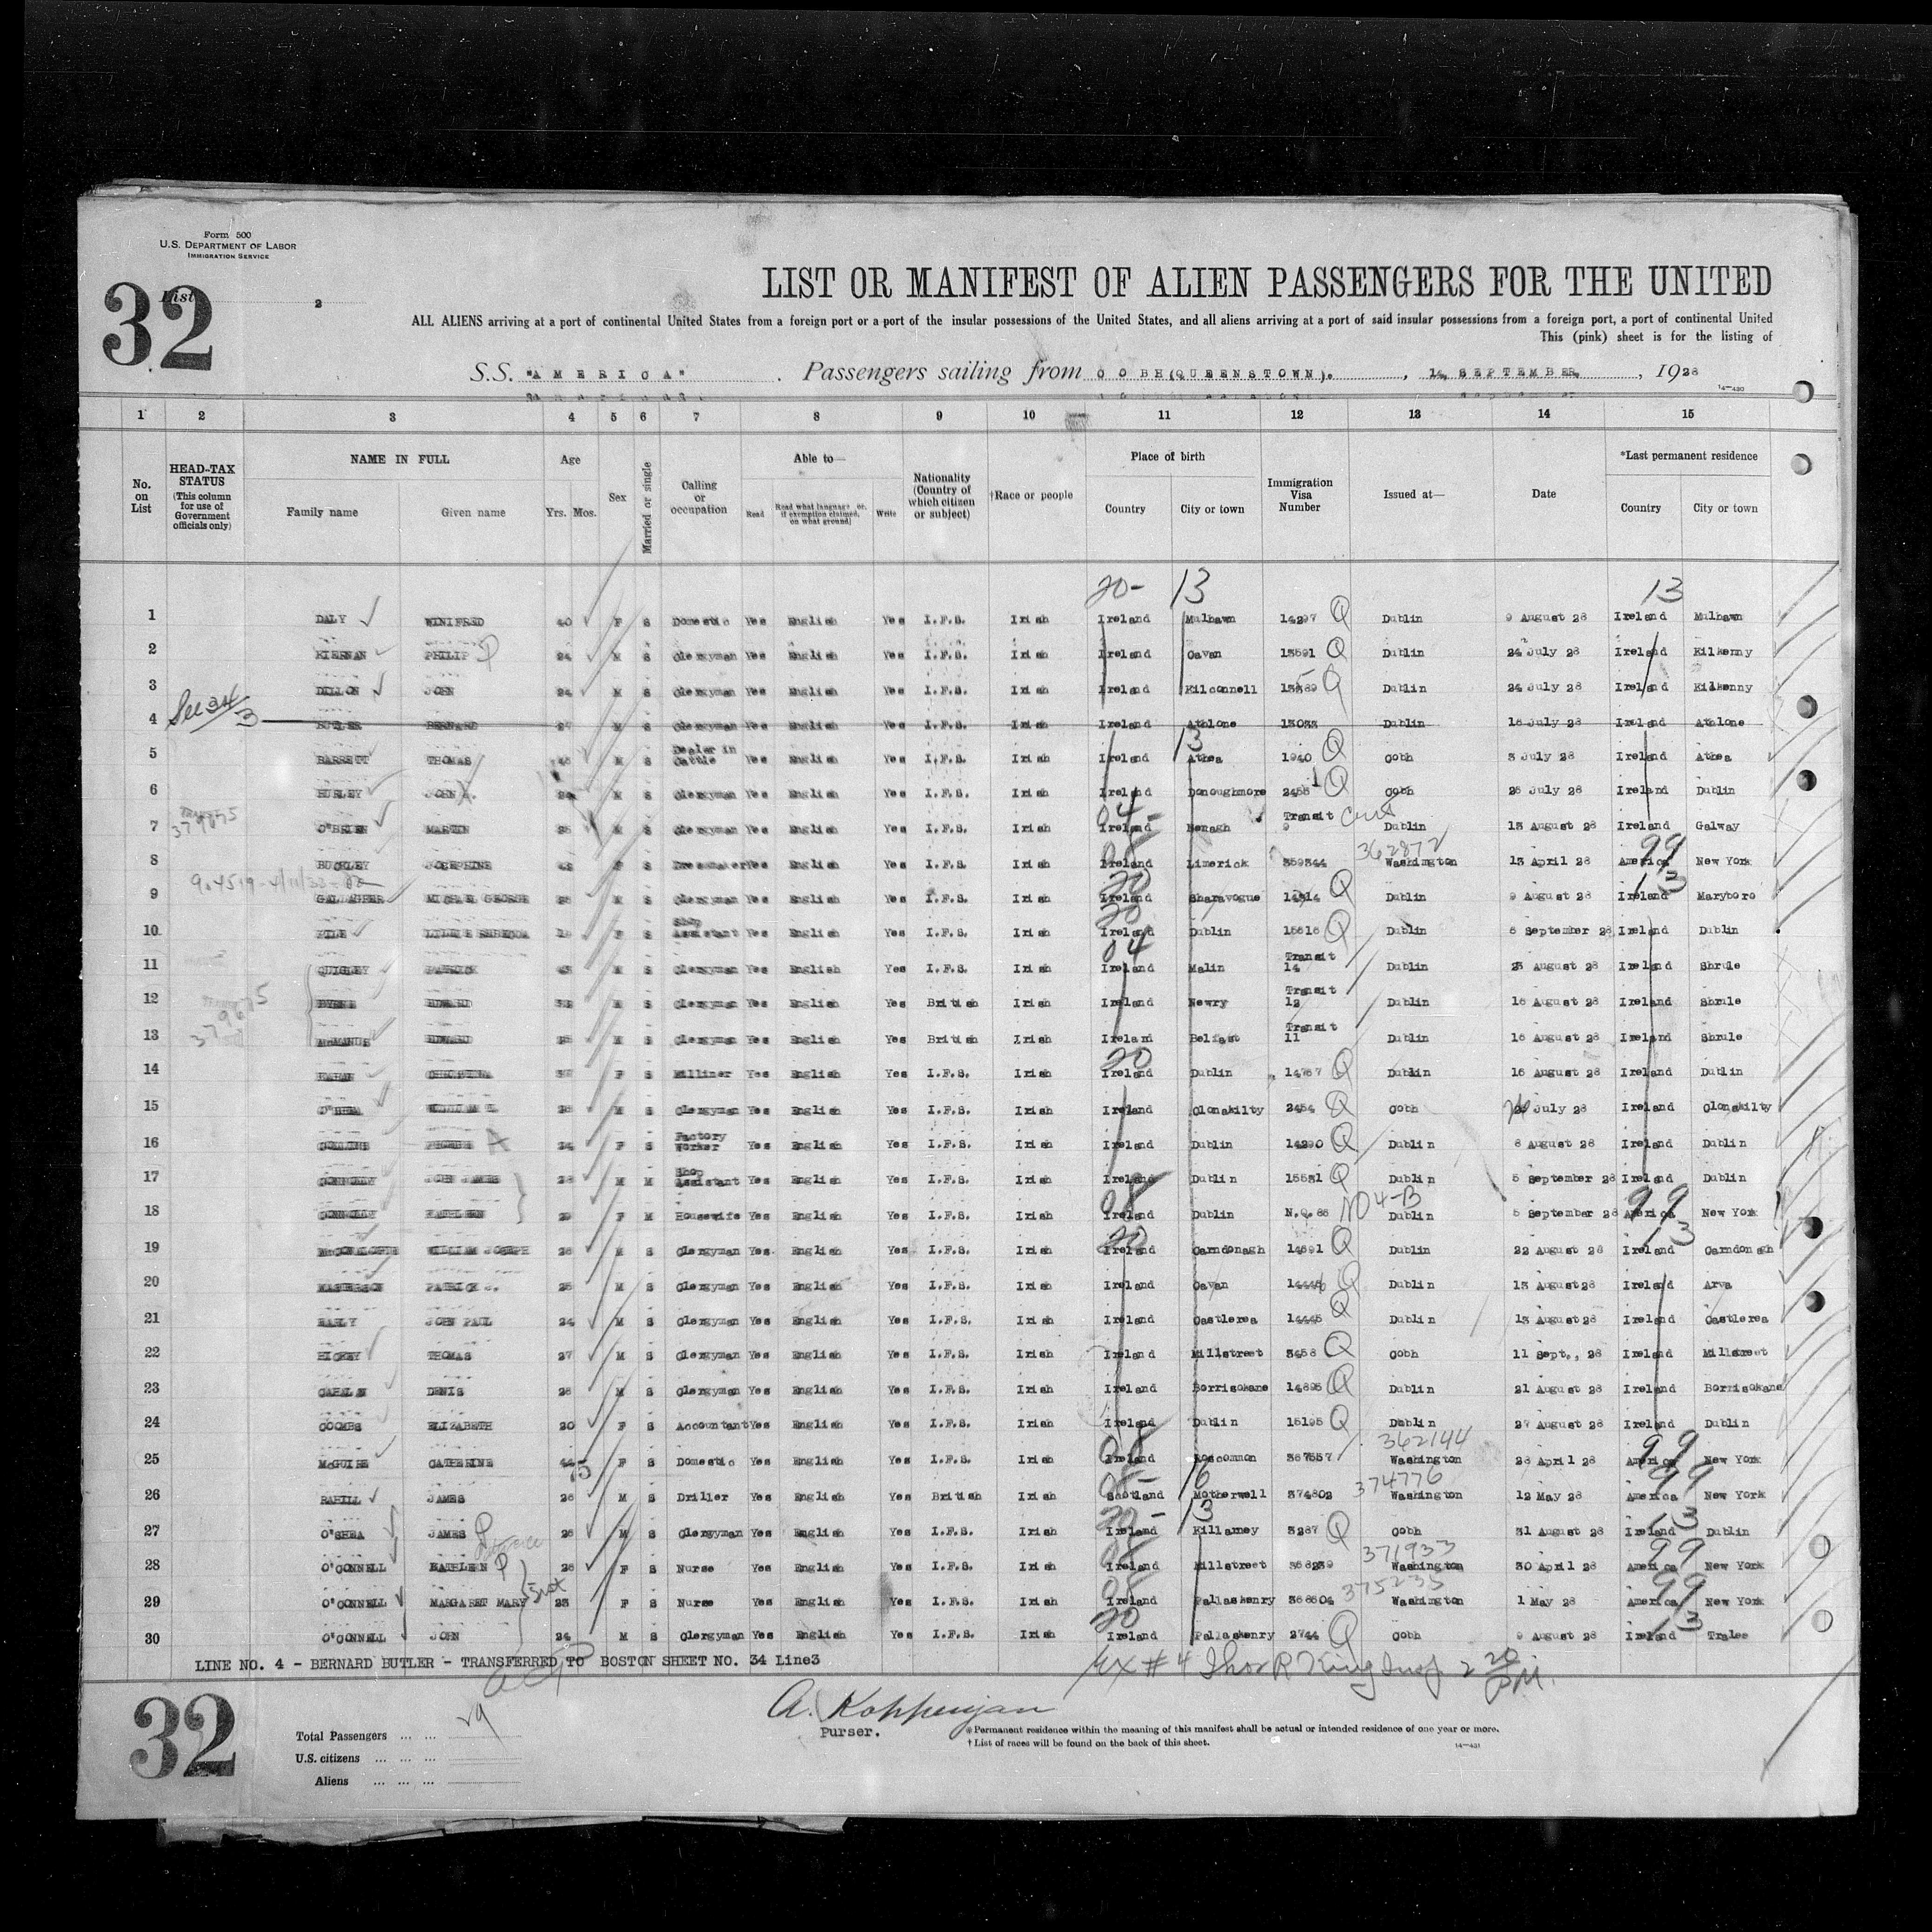 Form 500
U.S. DEPARTMENT OF LABOR
IMMIGRATION SERVICE
32
List 2
LIST OR MANIFEST OF ALIEN PASSENGERS FOR THE UNITED
ALL ALIENS arriving at a port of continental United States from a foreign port or a port of the insular possessions of the United States, and all aliens arriving at a port of said insular possessions from a foreign port, a port of continental United
This (pink) sheet is for the listing of
S.S. "AMERICA". Passengers sailing from COBH (QUEENSTOWN). , 14, SEPTEMBER, , 1928
14-430
1 2 3 4 5 6 7 8 9 10 11 12 13 14 15
No. on List
HEAD-TAX STATUS (This column for use of Government officials only)
NAME IN FULL
Family name Given name
Age
Yrs. Mos.
Sex
Married or single
Calling or occupation
Able to—
Read Read what language or, if exemption claimed, on what ground Write
Nationality (Country of which citizen or subject)
†Race or people
Place of birth
Country City or town
Immigration Visa Number
Issued at—
Date
*Last permanent residence
Country City or town
20- 13 13
1 DALY WINIFRED 40 F S Domestic Yes English Yes I.F.S. Irish Ireland Mulhawn 14297 Q Dublin 9 August 28 Ireland Mulhawn
2 KIERNAN PHILIP 24 M S Clergyman Yes English Yes I.F.S. Irish Ireland Cavan 13591 Q Dublin 24 July 28 Ireland Kilkenny
3 DILLON JOHN 24 M S Clergyman Yes English Yes I.F.S. Irish Ireland Kilconnell 13589 Q Dublin 24 July 28 Ireland Kilkenny
See 34/3
4 BUTLER BERNARD 27 M S Clergyman Yes English Yes I.F.S. Irish Ireland Athlone 13033 Dublin 18 July 28 Ireland Athlone
13
5 BARRETT THOMAS M S Dealer in Cattle Yes English Yes I.F.S. Irish Ireland Athea 1940 Q Cobh 3 July 28 Ireland Athea
6 HURLEY JOHN M S Clergyman Yes English Yes I.F.S. Irish Ireland Donoughmore Q Cobh 26 July 28 Ireland Dublin
04
7 O'BRIEN MARTIN M S Clergyman Yes English Yes I.F.S. Irish Ireland Nenagh Transit 9 Dublin 13 August 28 Ireland Galway
362872 99
8 BUCKLEY JOSEPHINE F S Dressmaker Yes English Yes I.F.S. Irish Ireland Limerick 359344 Washington 13 April 28 America New York
20 13
9 GALLAGHER MICHAEL GEORGE M S Clergyman Yes English Yes I.F.S. Irish Ireland Sharavogue Q Dublin 9 August 28 Ireland Maryboro
20
10 F S Shop Assistant Yes English Yes I.F.S. Irish Ireland Dublin 15616 Q Dublin September 28 Ireland Dublin
04
11 QUIGLEY PATRICK M S Clergyman Yes English Yes I.F.S. Irish Ireland Malin Transit 14 Dublin 23 August 28 Ireland Shrule
12 BYRNE EDWARD M S Clergyman Yes English Yes British Irish Ireland Newry Transit 12 Dublin 16 August 28 Ireland Shrule
13 McMANUS EDWARD M S Clergyman Yes English Yes British Irish Ireland Belfast Transit 11 Dublin 16 August 28 Ireland Shrule
20
14 F S Milliner Yes English Yes I.F.S. Irish Ireland Dublin 14767 Q Dublin 16 August 28 Ireland Dublin
15 O'SHEA M S Clergyman Yes English Yes I.F.S. Irish Ireland Clonakilty 2454 Q Cobh 26 July 28 Ireland Clonakilty
16 COLLINS F S Factory Worker Yes English Yes I.F.S. Irish Ireland Dublin 14290 Q Dublin August 28 Ireland Dublin
17 CONNOLLY JOHN JAMES M M Shop Assistant Yes English Yes I.F.S. Irish Ireland Dublin 15531 Q Dublin 5 September 28 Ireland Dublin
08 NO 4-B 99
18 CONNOLLY KATHLEEN F M Housewife Yes English Yes I.F.S. Irish Ireland Dublin N.Q. Dublin 5 September 28 America New York
20 13
19 WILLIAM JOSEPH M S Clergyman Yes English Yes I.F.S. Irish Ireland Carndonagh 14891 Q Dublin 22 August 28 Ireland Carndonagh
20 PATRICK M S Clergyman Yes English Yes I.F.S. Irish Ireland Cavan 14446 Q Dublin 13 August 28 Ireland Arva
21 EARLY JOHN PAUL 24 M S Clergyman Yes English Yes I.F.S. Irish Ireland Castlerea 14445 Q Dublin 13 August 28 Ireland Castlerea
22 HICKEY THOMAS 27 M S Clergyman Yes English Yes I.F.S. Irish Ireland Millstreet 3458 Q Cobh 11 Sept., 28 Ireland Millstreet
23 CAHALAN DENIS M S Clergyman Yes English Yes I.F.S. Irish Ireland Borrisokane 14895 Q Dublin 21 August 28 Ireland Borrisokane
24 COOMBS ELIZABETH 20 F S Accountant Yes English Yes I.F.S. Irish Ireland Dublin 15195 Q Dublin 27 August 28 Ireland Dublin
08 362144 99
25 McGUIRE CATHERINE 44 F S Domestic Yes English Yes I.F.S. Irish Ireland Roscommon 367557 Washington 28 April 28 America New York
08- 16 374776 99
26 RAHILL JAMES 26 M S Driller Yes English Yes British Irish Scotland Motherwell 374802 Washington 12 May 28 America New York
20- 13 13
27 O'SHEA JAMES 26 M S Clergyman Yes English Yes I.F.S. Irish Ireland Killarney 3287 Q Cobh 31 August 28 Ireland Dublin
08 371933 99
28 O'CONNELL KATHLEEN 26 F S Nurse Yes English Yes I.F.S. Irish Ireland Millstreet 368239 Washington 30 April 28 America New York
08 375235 99
29 O'CONNELL MARGARET MARY 23 F S Nurse Yes English Yes I.F.S. Irish Ireland Pallaskenry 368604 Washington 1 May 28 America New York
20 13
30 O'CONNELL JOHN 24 M S Clergyman Yes English Yes I.F.S. Irish Ireland Pallaskenry 2744 Q Cobh 9 August 28 Ireland Tralee
LINE NO. 4 - BERNARD BUTLER - TRANSFERRED TO BOSTON SHEET NO. 34 Line3
Ex #4 Thos R King Insp. 2 20 P.M.
32
Total Passengers ... ... 29
U.S. citizens ... ... ...
Aliens ... ... ...
A. Koppenjan
Purser.
*Permanent residence within the meaning of this manifest shall be actual or intended residence of one year or more.
†List of races will be found on the back of this sheet.
14-431